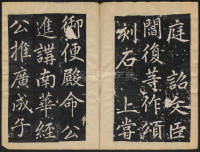 庭詔文臣
閻復等作頌
刻石上嘗
御便殿命公
進講南華經
公推廣成子